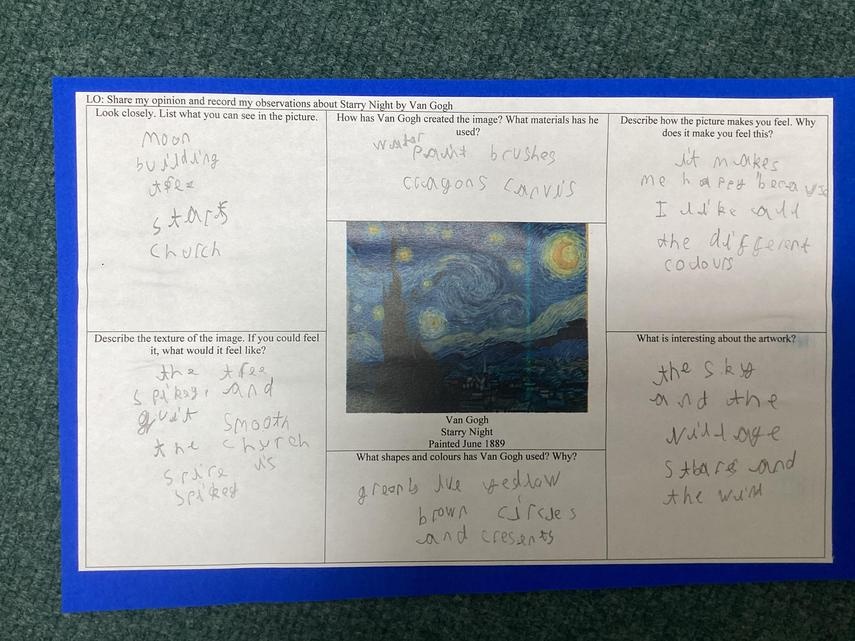 LO: Share my opinion and record my observations about Starry Night by Van Gogh
Look closely. List what you can see in the picture.
Moon
building
tree
stars
church
How has Van Gogh created the image? What materials has he
used?
water
Paint brushes
crayons canvis
Describe how the picture makes you feel. Why
does it make you feel this?
it makes
me happy because
I like all
the different
colours
Describe the texture of the image. If you could feel
it, what would it feel like?
the tree
spikey. and
quit smooth
the church
spire is
spikey
Van Gogh
Starry Night
Painted June 1889
What shapes and colours has Van Gogh used? Why?
yellow
brown circles
and cresents
What is interesting about the artwork?
the sky
and the
village
stars and
the